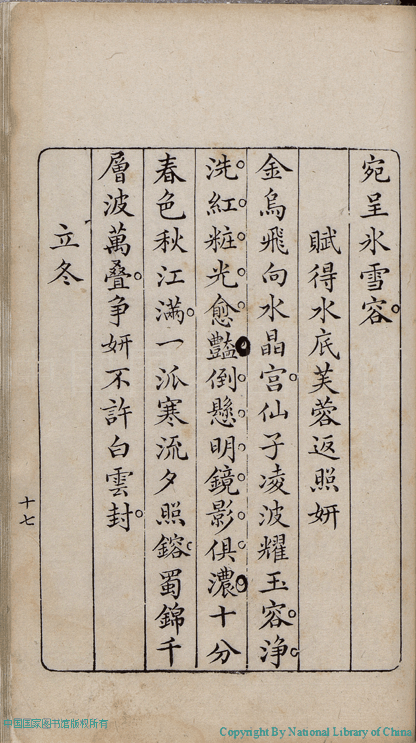 宛呈氷雪容
賦得水底芙蓉返照妍
金烏飛向水晶宫仙子凌波耀玉容浄
洗紅粧光愈豔倒懸明鏡影俱濃十分
春色秋江滿一派寒流夕照鎔蜀錦千
層波萬叠争妍不許白雲封
立冬
十七
中国国家图书馆版权所有
Copyright By National Library of China